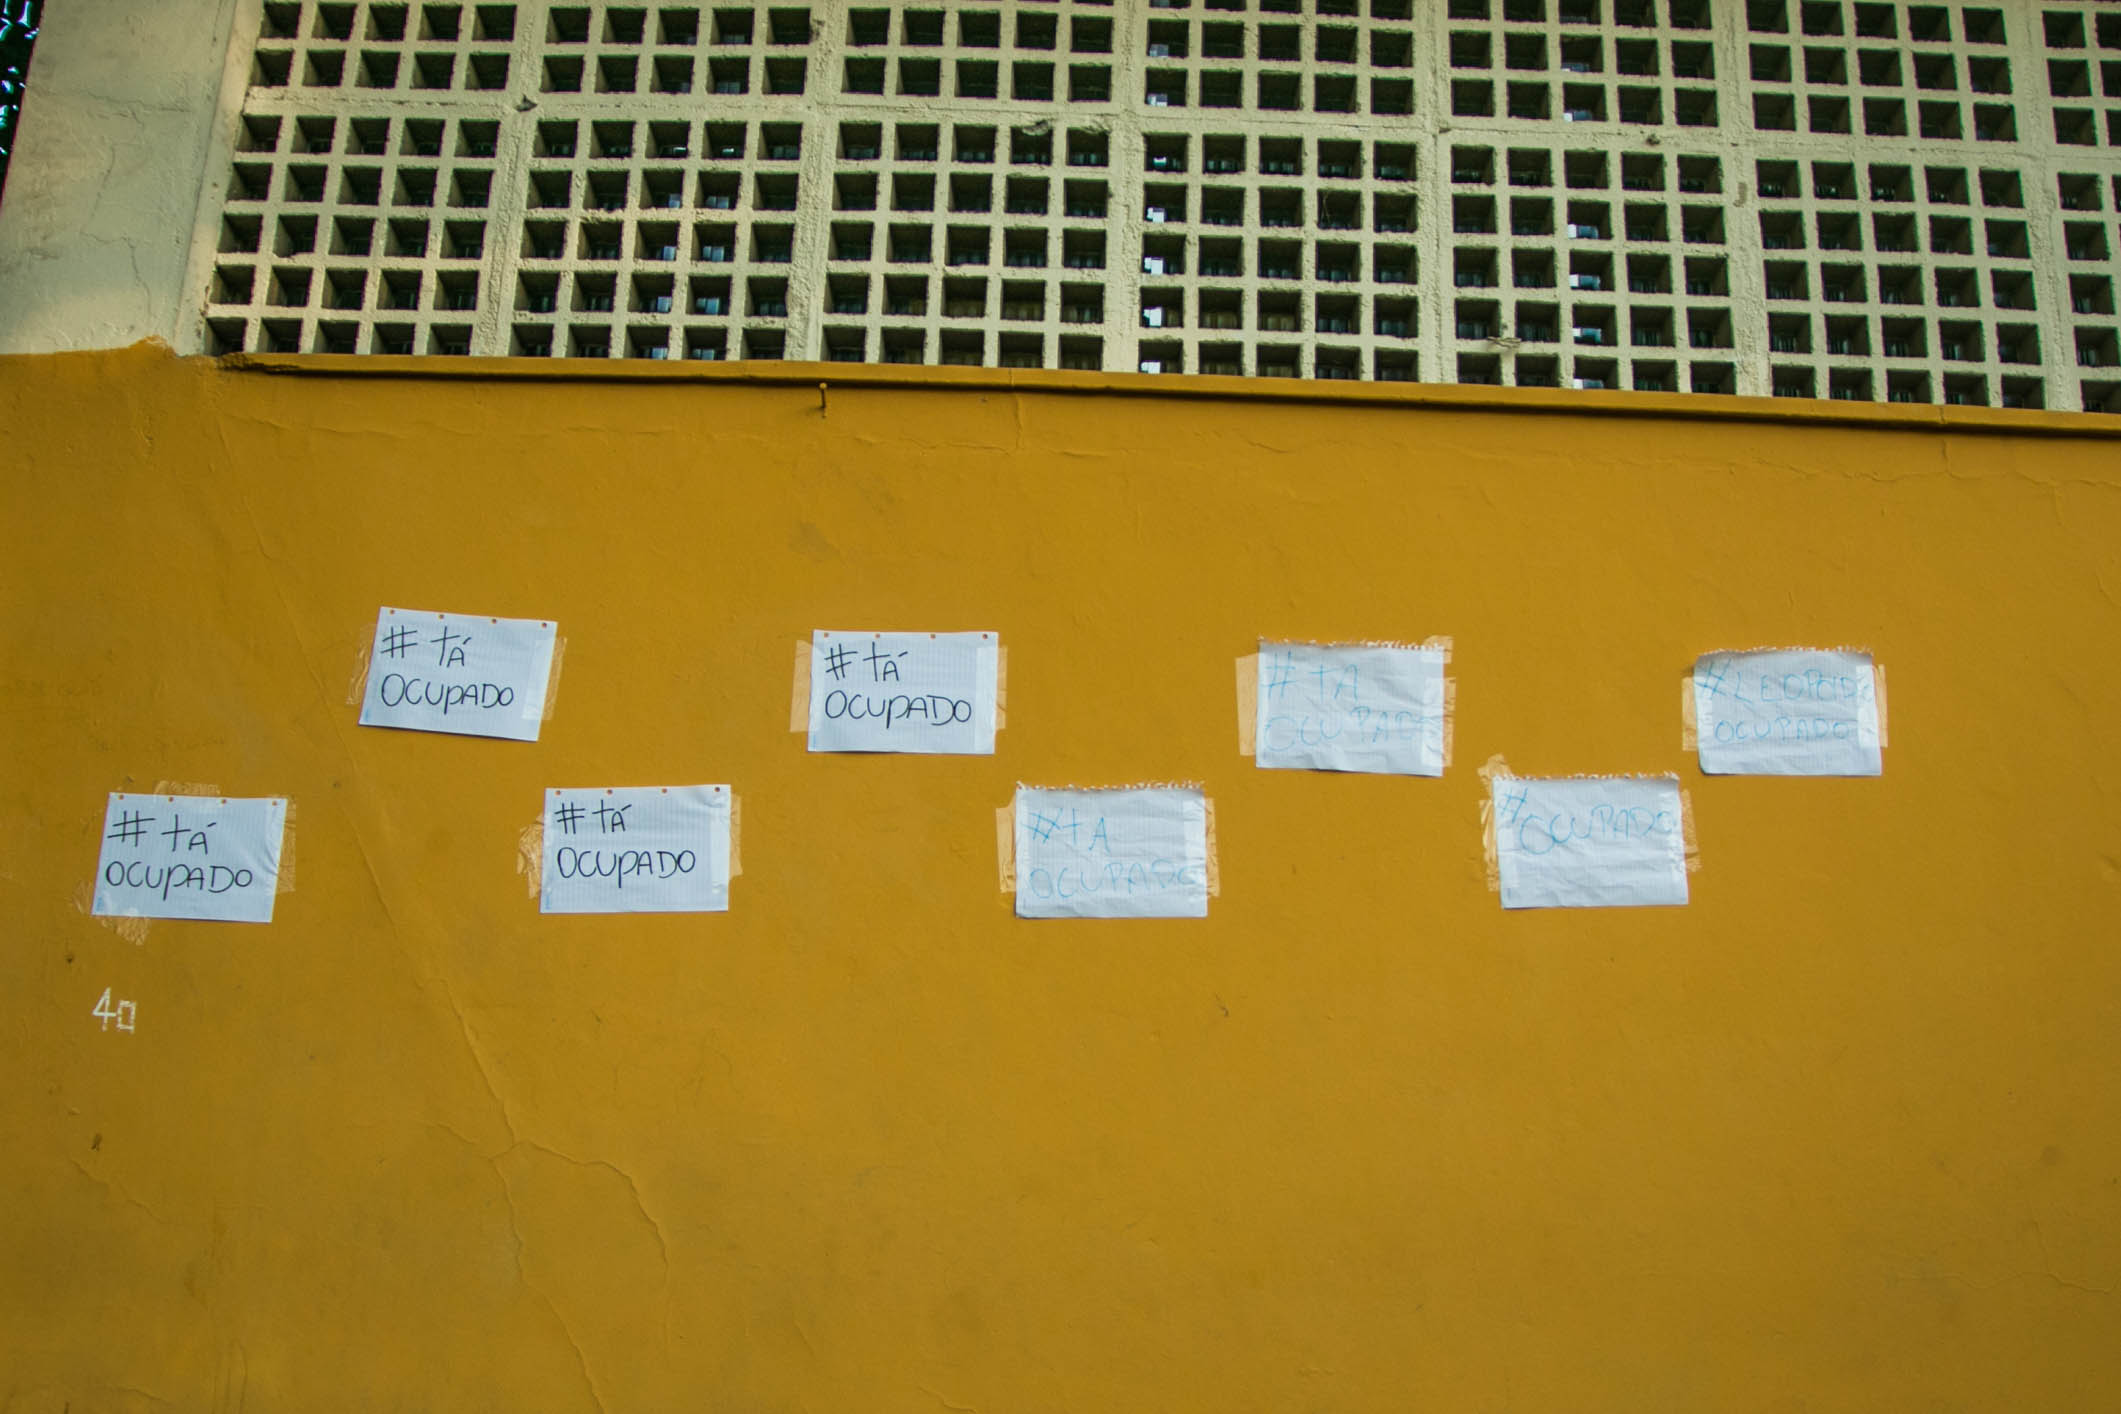 # tá
OCUPADO
# tá
OCUPADO
# tA
OCUPADO
#LEOPOLDO
OCUPADO
# tá
OCUPADO
# tá
OCUPADO
#tA
OCUPADO
#OCUPADO
40